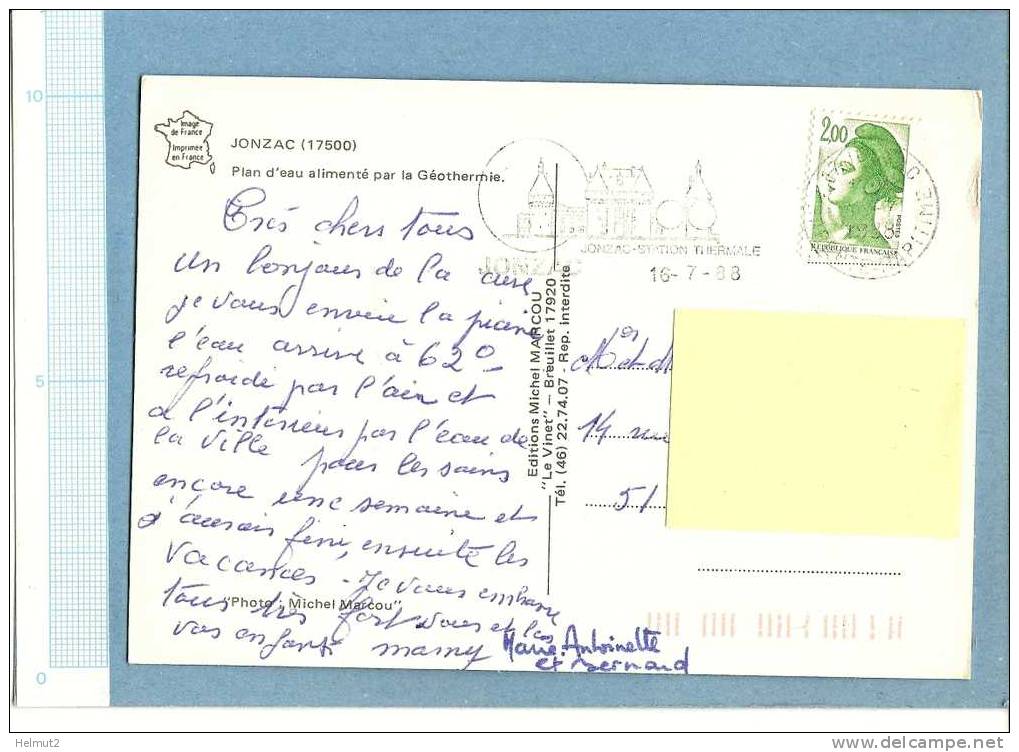 10
5
0
Image
de France
Imprimée
en France
JONZAC (17500)
Plan d'eau alimenté par la Géothermie.
2,00
REPUBLIQUE FRANÇAISE
JONZAC-STATION THERMALE
JONZAC
16-7-88
Très chers tous
un bonjour de la cure
je vous envoie la
l'eau arrive à 62°
refroidi par l'air et
a l'intérieur par l'eau de
la ville pour les soins
encore une semaine et
j'aurais fini, ensuite les
vacances - Je vous embrasse
tous très fort vous et les
vos enfants mamy
Marie.Antoinette
et Bernard
"Photo : Michel Marcou"
Editions Michel MARCOU
"Le Vinet" – Breuillet 17920
Tél. (46) 22.74.07 - Rep. interdite
14 rue
51
Helmut2
delcampe.net